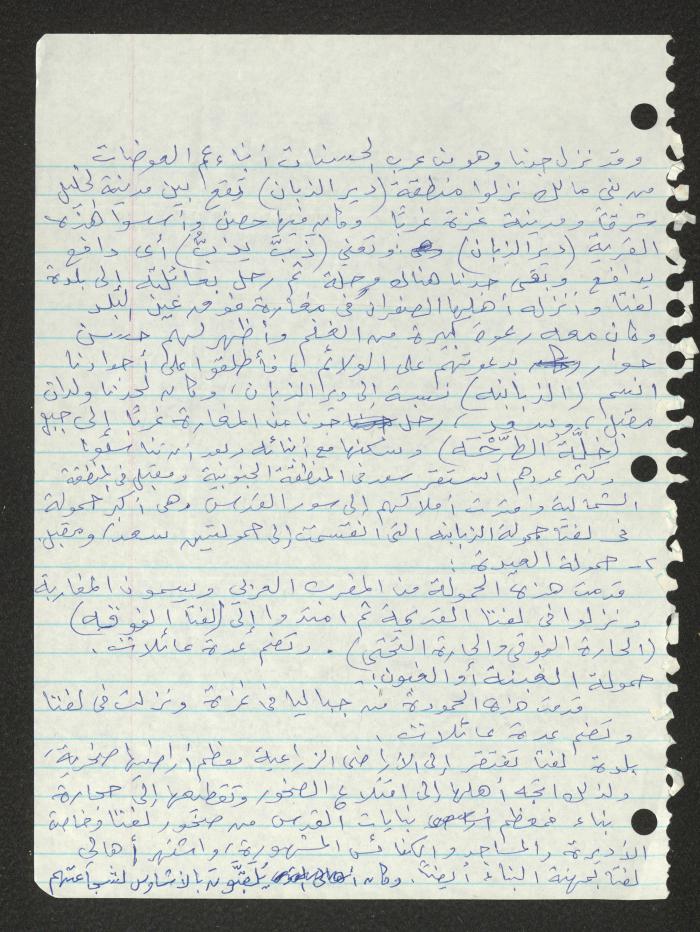 وقد نزل جدنا وهو من عرب الحسنات أبناء عم العوضات
من بني مالك نزلوا منطقة (دير الزبان) تقع بين مدينة الخليل
شرقاً ومدينة غزة غرباً وكان فيها حصن وأسسوا هذه
القرية (دير الزبان) وتعني (ذَبَّ يذبُّ) أي دافع
يدافع وبقي جدنا هناك مرحلة ثم رحل بعائلته إلى بلدة
لفتا وأنزله أهلها الصفران في مغارة فوق عين البلد
وكان معه رعوة كبيرة من الغنم وأظهر لهم حسن
جوار بدعوتهم على الولائم فأطلقوا على أجدادنا
اسم (الزبانه) نسبة إلى دير الزبان، وكان لجدنا ولدان
مقبل، وسعد، رحل جدنا من المغارة غرباً إلى جبع
(خلَّة الطرحه) وسكنها مع أبنائه وبعد أن تناسلوا
وكثر عددهم استقر سعد في المنطقة الجنوبية ومقبل في المنطقة
الشمالية وامتدت أملاكهم إلى سور القدس وهي أكبر حمولة
في لفتا حمولة الزبانه التي انقسمت إلى حمولتين سعد، ومقبل.
٢- حمولة العيدة:
قدمت هذه الحمولة من المغرب العربي ويسمون المغاربة
ونزلوا في لفتا القديمة ثم امتدوا إلى (لفتا الفوقه)
(الحارة الفوقى والحارة التحتى). وتضم عدة عائلات.
حمولة الغبنة أو الغبون:-
قدمت هذه الحمولة من جباليا في غزة ونزلت في لفتا
وتضم عدة عائلات.
بلدة لفتا تفتقر إلى الأراضي الزراعية معظم أراضيها صخرية،
ولذلك اتجه أهلها إلى اقتلاع الصخور وتقطيعها إلى حجارة
بناء فمعظم بنايات القدس من صخور لفتا وخاصة
الأديرة والمساجد والكنائس المشهورة، واشتهر أهالي
لفتا بمهنة البناء أيضاً. وكان يُلقبون بالأشاوس لشجاعتهم